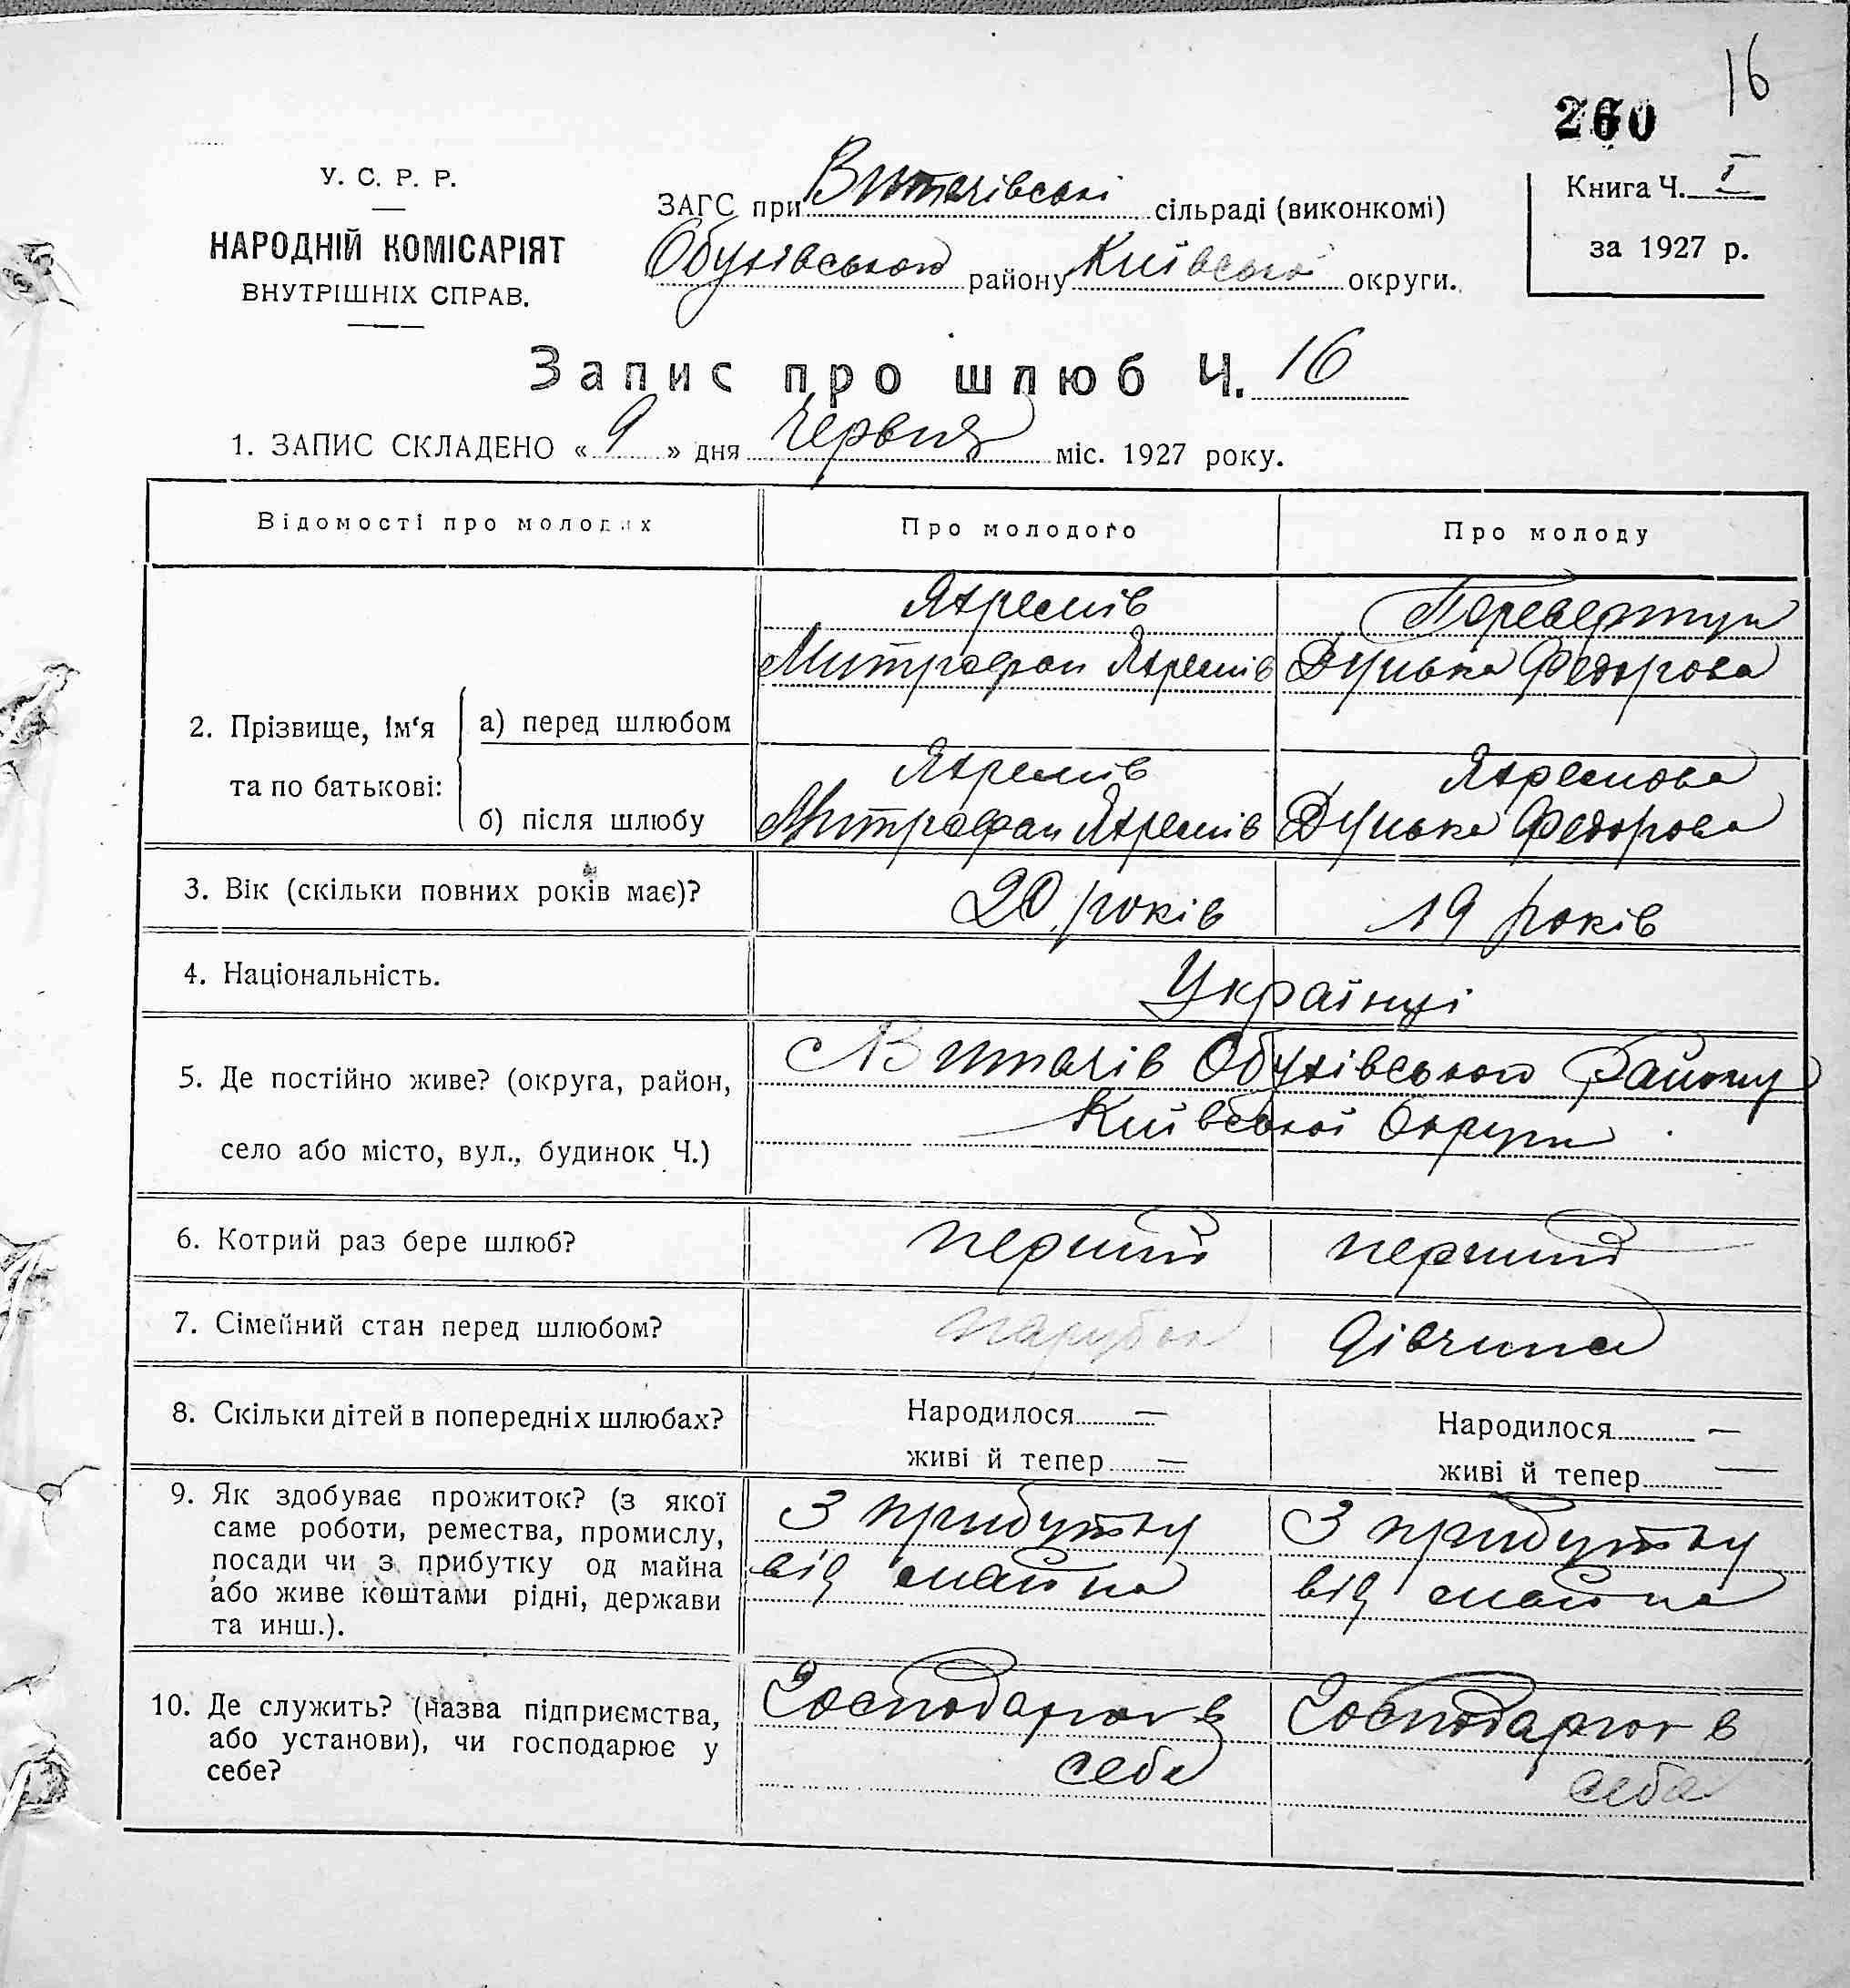 16
260
У. С. Р. Р.
НАРОДНІЙ КОМІСАРІЯТ
ВНУТРІШНІХ СПРАВ.
ЗАГС при Витачівські сільраді (виконкомі)
Обухівського району Київської округи.
Книга Ч. I
за 1927 р.
Запис про шлюб Ч. 16
1. ЗАПИС СКЛАДЕНО « 9 » дня Червня міс. 1927 року.
Відомості про молодих Про молодого Про молоду
Яхремів Перевертун
Митрофан Яхремів Дунька Федорова
2. Прізвище, ім‘я та по батькові:
а) перед шлюбом
Яхремів Яхремова
б) після шлюбу Митрофан Яхремів Дунька Федорова
3. Вік (скільки повних років має)? 20 років 19 років
4. Національність. Українці
5. Де постійно живе? (округа, район, Витачів Обухівського Району
село або місто, вул., будинок Ч.) Київської Округи
6. Котрий раз бере шлюб? перший перший
7. Сімейний стан перед шлюбом? парубок дівчина
8. Скільки дітей в попередніх шлюбах? Народилося — Народилося —
живі й тепер — живі й тепер —
9. Як здобуває прожиток? (з якої
саме роботи, ремества, промислу,
посади чи з прибутку од майна
або живе коштами рідні, держави
та инш.).
З прибутку З прибутку
від майна від майна
10. Де служить? (назва підприємства,
або установи), чи господарює у
себе?
Господарює в Господарює в
себе себе